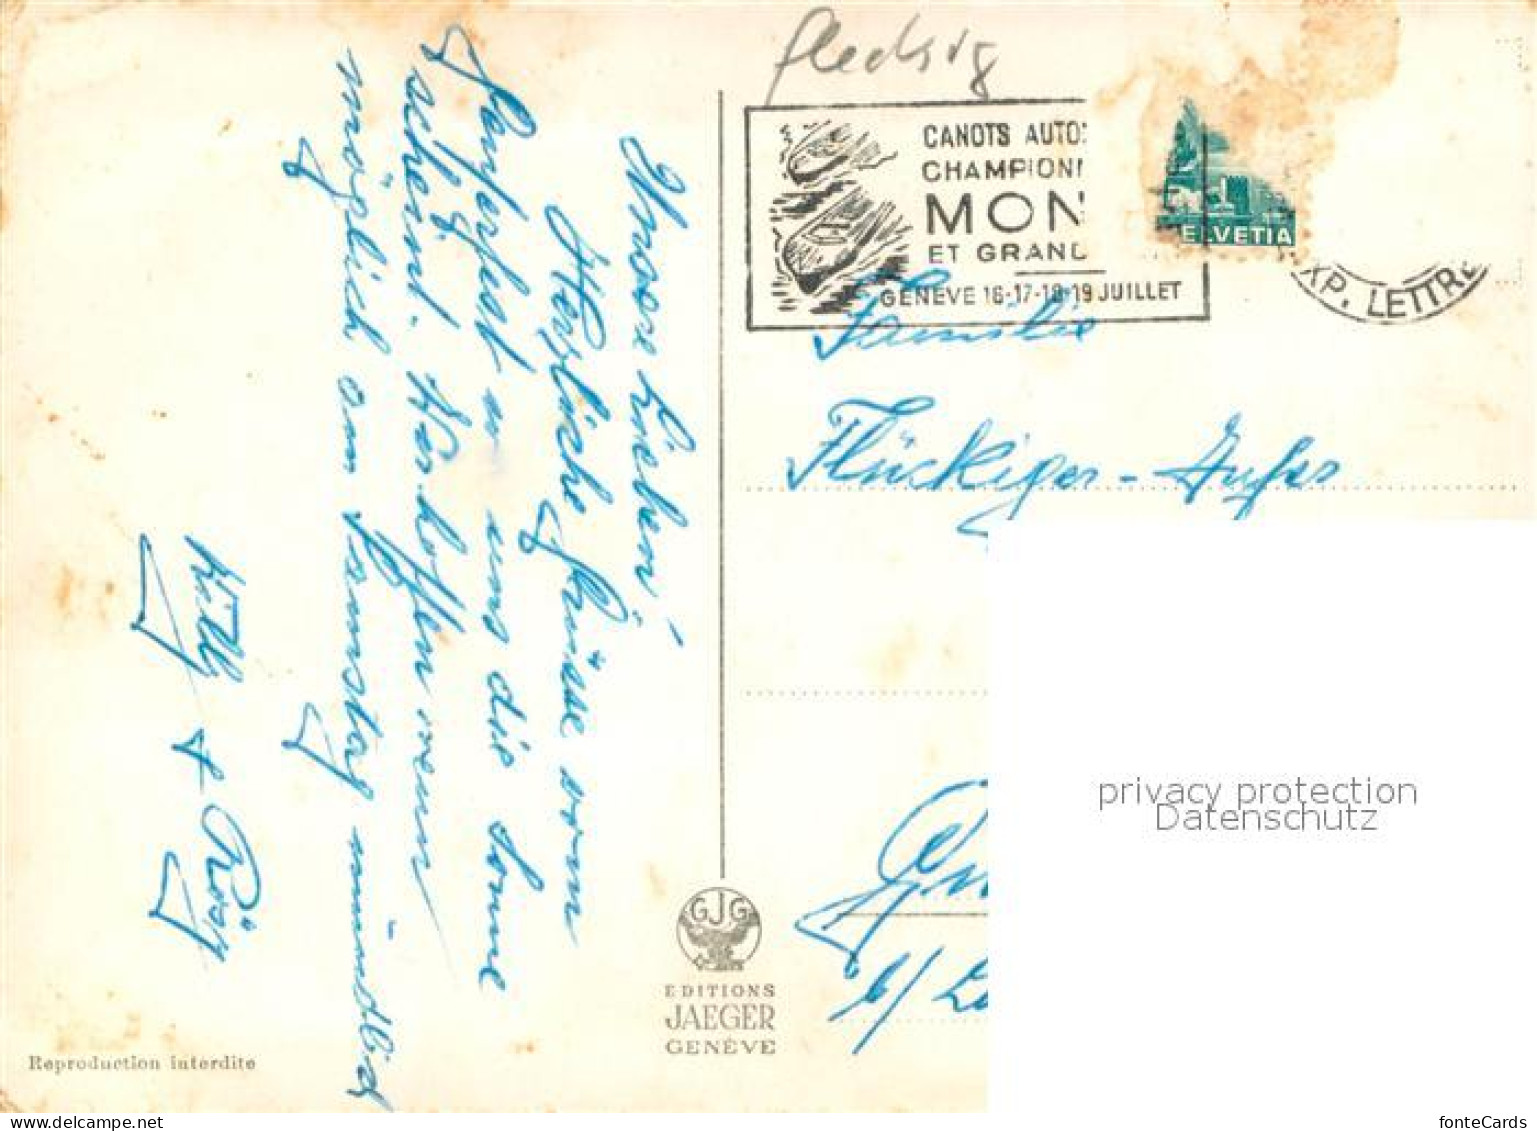 fleckig
CANOTS AUTO
CHAMPION
MON
ET GRAND
GENEVE 16-17-18-19 JUILLET
HELVETIA
EXP. LETTRE
Unsere Lieben!
Herzliche Grüsse vom
Genfersee wo uns die Sonne
scheint. Wir hoffen wenn
möglich am Samstag mündlich
Willy + Rösy
Familie
Flückiger -
b/
GJG
EDITIONS
JAEGER
GENÈVE
Reproduction interdite
privacy protection
Datenschutz
fonteCards